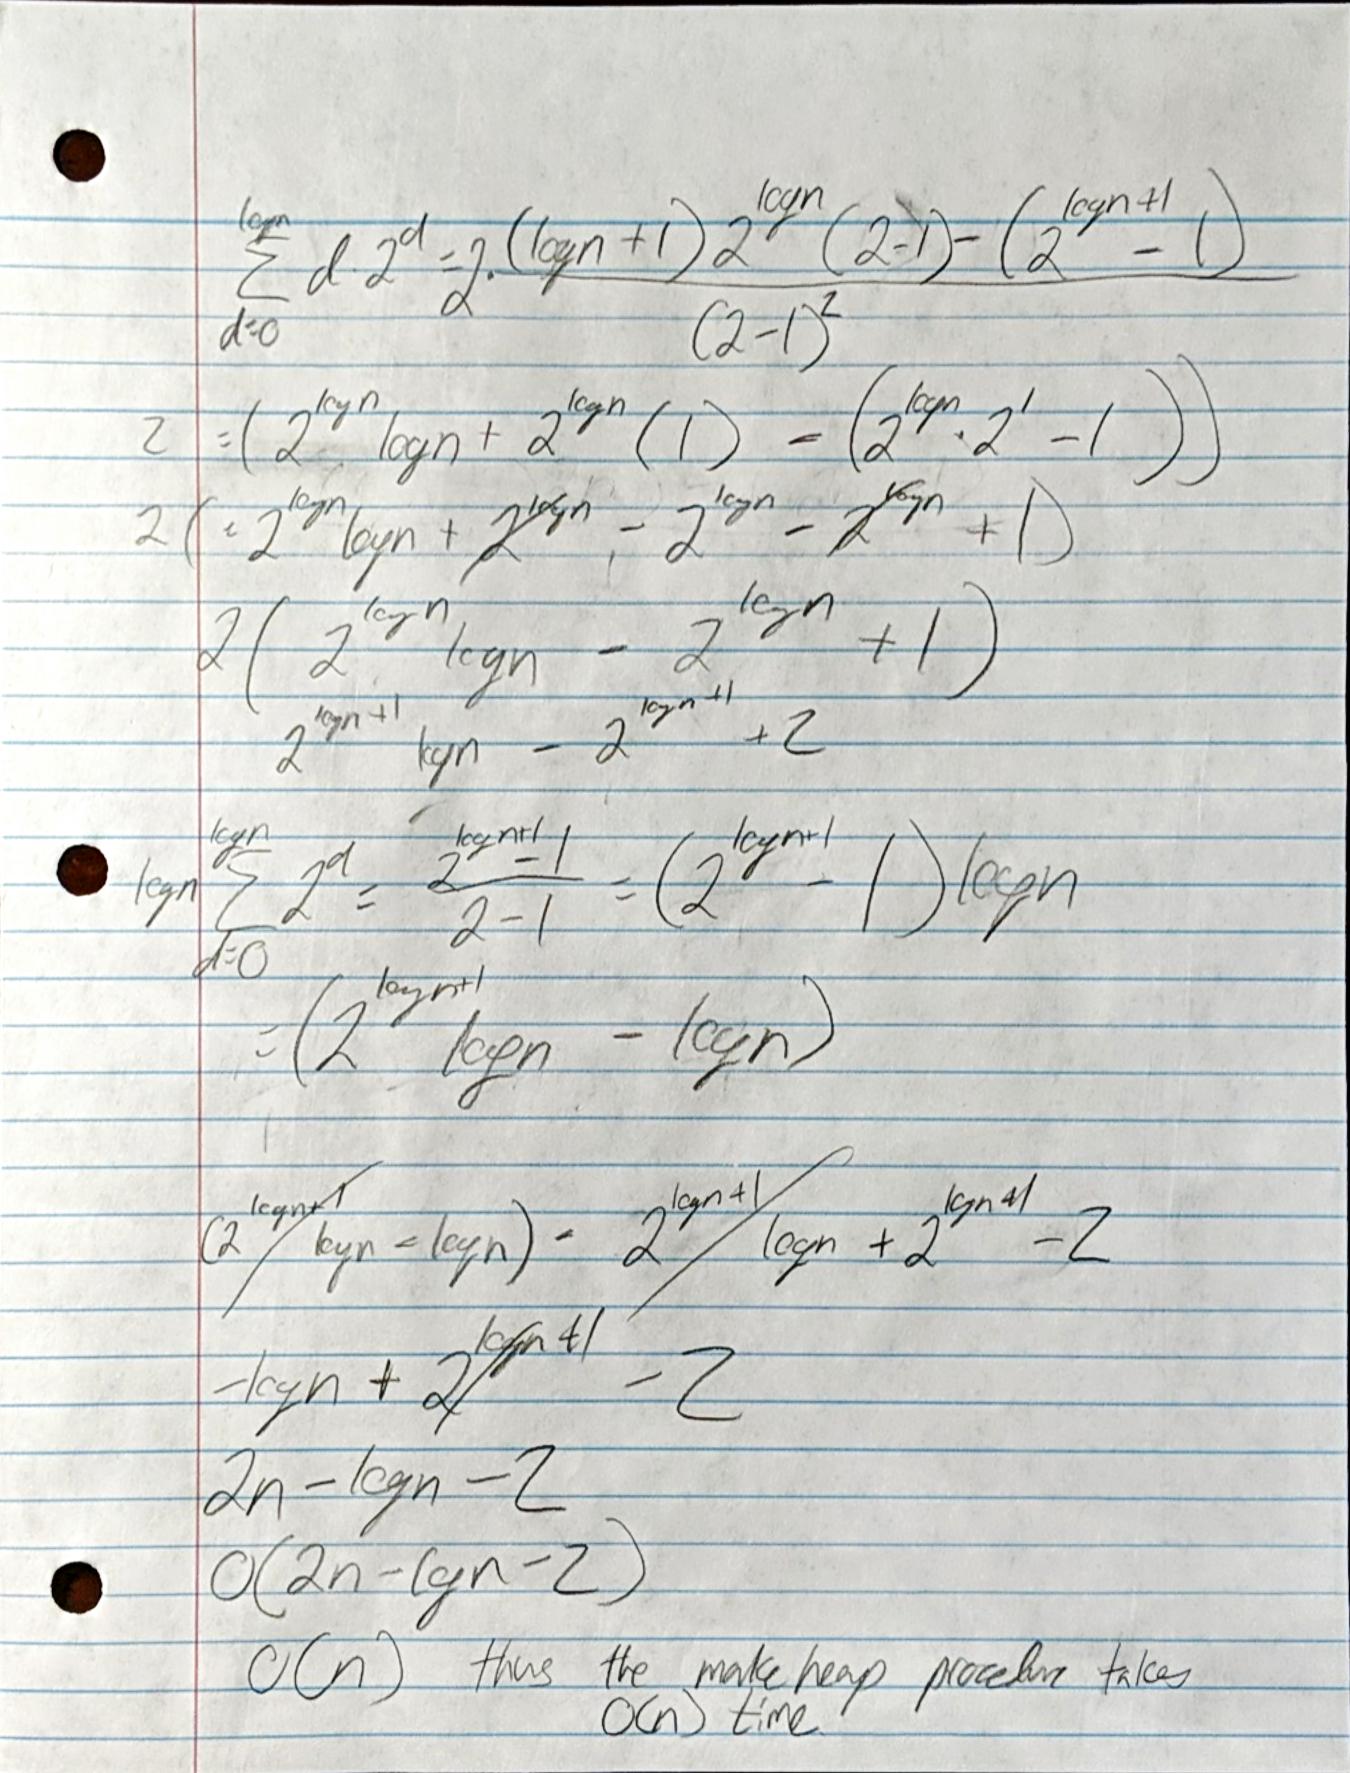 \sum_{d=0}^{logn} d \cdot 2^d = 2 \cdot \frac{(logn + 1) 2^{logn} (2-1) - (2^{logn+1} - 1)}{(2-1)^2}
2 = (2^{logn} logn + 2^{logn} (1) - (2^{logn} \cdot 2^1 - 1))
2 ( = 2^{logn} logn + 2^{logn} - 2^{logn} - 2^{logn} + 1)
2 ( 2^{logn} logn - 2^{logn} + 1 )
2^{logn+1} logn - 2^{logn+1} + 2
logn \sum_{d=0}^{logn} 2^d = \frac{2^{logn+1} - 1}{2-1} = (2^{logn+1} - 1) logn
= (2^{logn+1} logn - logn)
(2^{logn+1} logn - logn) - 2^{logn+1} logn + 2^{logn+1} - 2
-logn + 2^{logn+1} - 2
2n - logn - 2
O(2n - logn - 2)
O(n) thus the makeheap procedure takes
O(n) time.